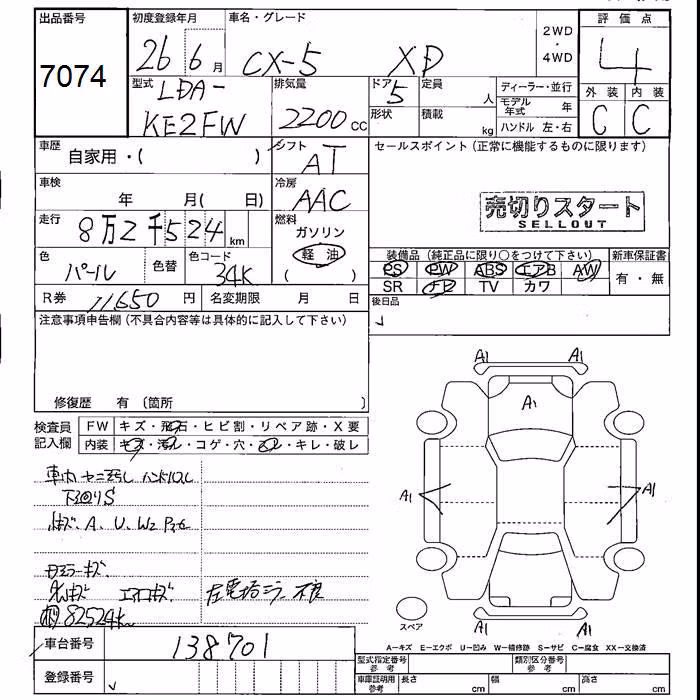 出品番号
7074
初度登録年月
26 6月
車名・グレード
CX-5 XD
2WD
・
4WD
評価点
4
外装 内装
C C
型式
LDA-
KE2FW
排気量
2200cc
ドア
5
定員
人
形状
積載
kg
ディーラー・並行
モデル年式 年
ハンドル 左・右
車歴
自家用・( )
シフト
AT
セールスポイント(正常に機能するものに限ります)
売切りスタート
SELLOUT
車検
年 月( 日)
冷房
AAC
走行
8万2千524km
燃料
ガソリン
軽油
( )
色
パール
色替
色コード
34K
装備品(純正品に限り○をつけて下さい)
新車保証書
PS PW ABS エアB AW
SR ナビ TV カワ
有・無
R券 11650円
名変期限 月 日
後日品
注意事項申告欄(不具合内容等は具体的に記入して下さい)
修復歴 有 (箇所 )
検査員
記入欄
FW キズ・飛石・ヒビ割・リペア跡・X要
内装 キズ・汚れ・コゲ・穴・スレ・キレ・破レ
下廻りS
A、U、W2
82524km
A1 A1
A1
A1 A1
A1 A1
スペア
A−キズ E−エクボ U−凹み W−補修跡 S−サビ C−腐食 XX−交換済
車台番号
138701
登録番号
型式指定番号
参考
類別区分番号
参考
車庫証明用
参考
長さ cm 幅 cm 高さ cm